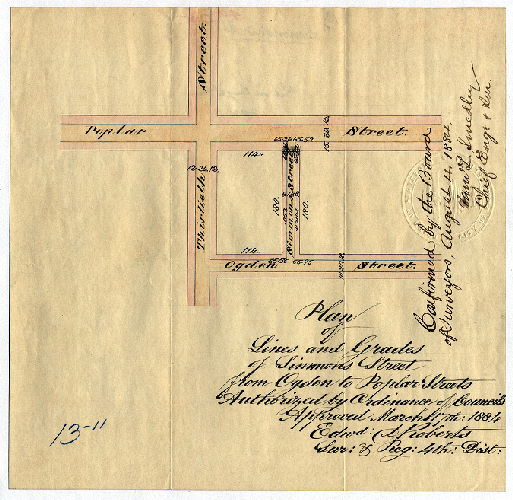 Street.
Poplar
Street.
114.
Thirtieth
Simmons Street
180.
180.
114.
Ogden
Street.
Plan
of
Lines and Grades
of Simmons Street
from Ogden to Poplar Streets
Authorized by Ordinance of Councils
Approved March 1884
Edwd. Roberts
Sur: & Reg: 4th: Dist.
13-11
Confirmed by the Board
of Surveyors, August 4, 1884.
Saml L. Smedley
Chief Engr & Sur.